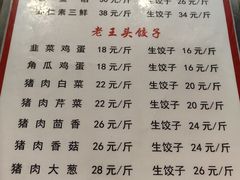 仁素三鲜 38 元/斤 生饺子 34 元/斤
老王头饺子
韭菜鸡蛋 18 元/斤 生饺子 16 元/斤
角瓜鸡蛋 18 元/斤 生饺子 16 元/斤
猪肉白菜 22 元/斤 生饺子 20 元/斤
猪肉芹菜 22 元/斤 生饺子 20 元/斤
猪肉茴香 26 元/斤 生饺子 24 元/斤
猪肉香菇 26 元/斤 生饺子 24 元/斤
猪肉大葱 28 元/斤 生饺子 26 元/斤